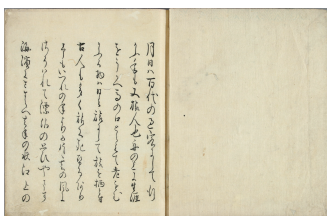 月日ハ百代の過客にして行
かふ年も又旅人也舟の上に生涯
をうかへ馬の口とらえて老をむ
かふる物ハ日々旅にして旅を栖とす
古人も多く旅に死せるあり
予もいつれの年よりか片雲の風に
さそはれて漂泊の思ひやます
海濱にさすらへ去年の秋江上の